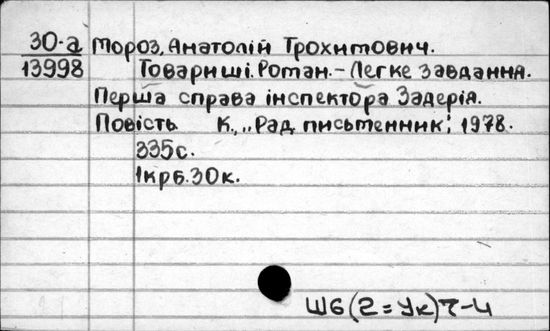 30-а Мороз, Анатолій Трохимович.
13998 Товариші. Роман. – Легке завдання.
Перша справа інспектора Задерія.
Повість. К., „Рад. письменник", 1978.
335с.
1крб.30к.
Ш6(2=Ук)7-4